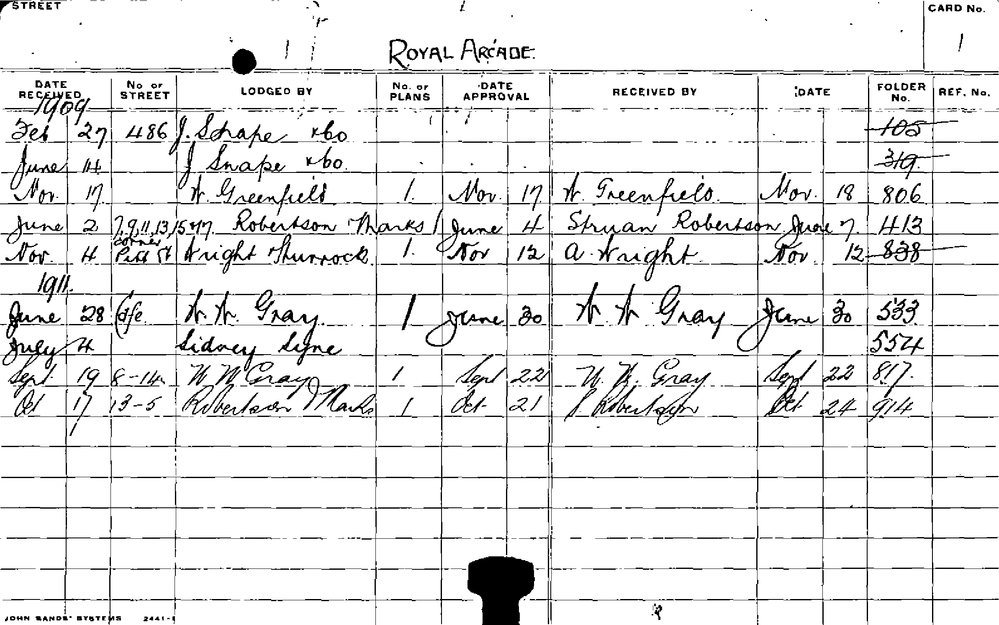 STREET CARD No.
1
ROYAL ARCADE.
DATE RECEIVED No OF STREET LODGED BY No. OF PLANS DATE APPROVAL RECEIVED BY DATE FOLDER No. REF. No.
1909
Feb 27 486 J. Snape 105
June J Snape 319
Nov. 17 W. Greenfield 1. Nov. 17 W. Greenfield. Nov. 18 806
June 2 7, 9, 11, 13, 15 & 17. Robertson & Marks 1 June 4 Struan Robertson June 7. 413
Nov. 4 corner Pitt St Wright Thurrock 1. Nov 12 A. Wright. Nov. 12 838
1911.
June 28 Cafe W. W. Gray. 1 June 30 W. W Gray June 30 533
July 4 Sidney Lyne 554
Sept 19 8-14 W W Gray 1 Sept 22 W. W. Gray Sept 22 817.
Oct 17 13-5 Robertson & Marks 1 Oct 21 Robertson Oct 24 914
JOHN SANDS' SYSTEMS 2441-1